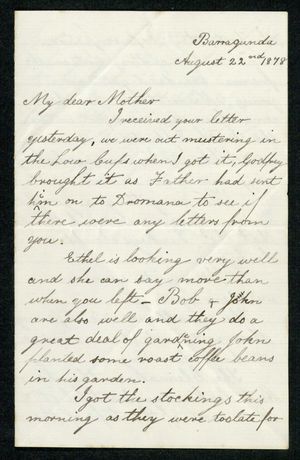 Barragunda
August 22nd 1878
My dear Mother
I received your letter
yesterday, we were out mustering in
the how Cups when I got it, Godfrey
brought it as Father had sent
him on to Dromana to see i
there were any letters from
you.
Ethel is looking very well
and she can say more than
when you left - Bob & John
are also well and they do a
great deal of gardning John
planted some roast coffee beans
in his garden.
I got the stockings this
morning as they were too late for